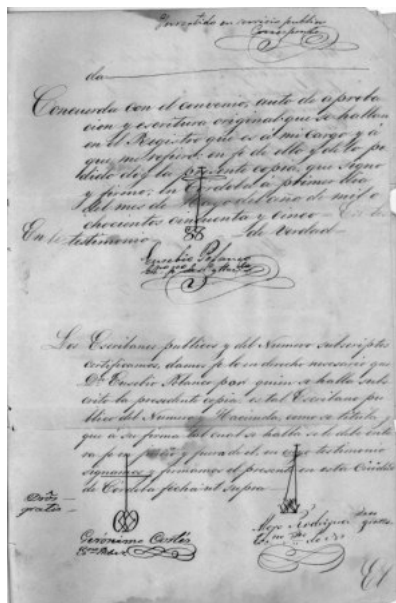 Invertido en servicio publico
da
Concuerda con el convenio, auto de aproba
cion y escritura original que se hallan
en el Registro que es á mi cargo y á
que me refiero: en fe de ello y de lo pe
dido doy la presente copia, que signo
y firmo, en Córdoba á primer dia
del mes de Mayo del año de mil o
chocientos cincuenta y cinco
En testimonio de Verdad
Eusebio Blanco
Los Escribanos publicos y del Numero subscriptos
certificamos, damos fe la en derecho necesaria que
Dn. Eusebio Blanco por quien se halla subs
crita la precedente copia, es tal Escribano pu
blico del Numero y Hacienda, como se titula, y
que á su firma tal cual se halla se le debe ente
ra fe en juicio y fuera de el, en cuyo testimonio
signamos y firmamos el presente en esta Ciudad
de Córdoba fecha ut supra
Dros.
gratis
Geronimo Cortés
Rodriguez
gratis
El